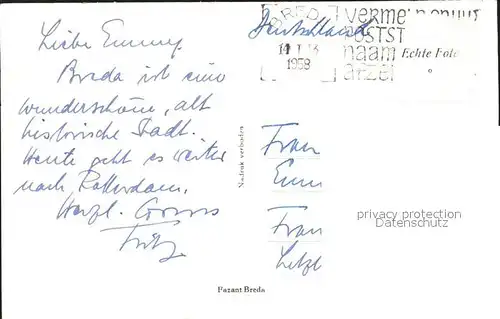 Liebe Emmy,
Breda ist eine
wunderschöne, alt
historische Stadt.
Heute geht es weiter
nach Rotterdam.
Herzl. Gruss
Fritz
BREDA
1958
Deutschland
VERMELD
POSTST
naam
afzen
Echte Foto
Nadruk verboden
Frau
Emm
Frau
privacy protection
Datenschutz
Fazant.Breda